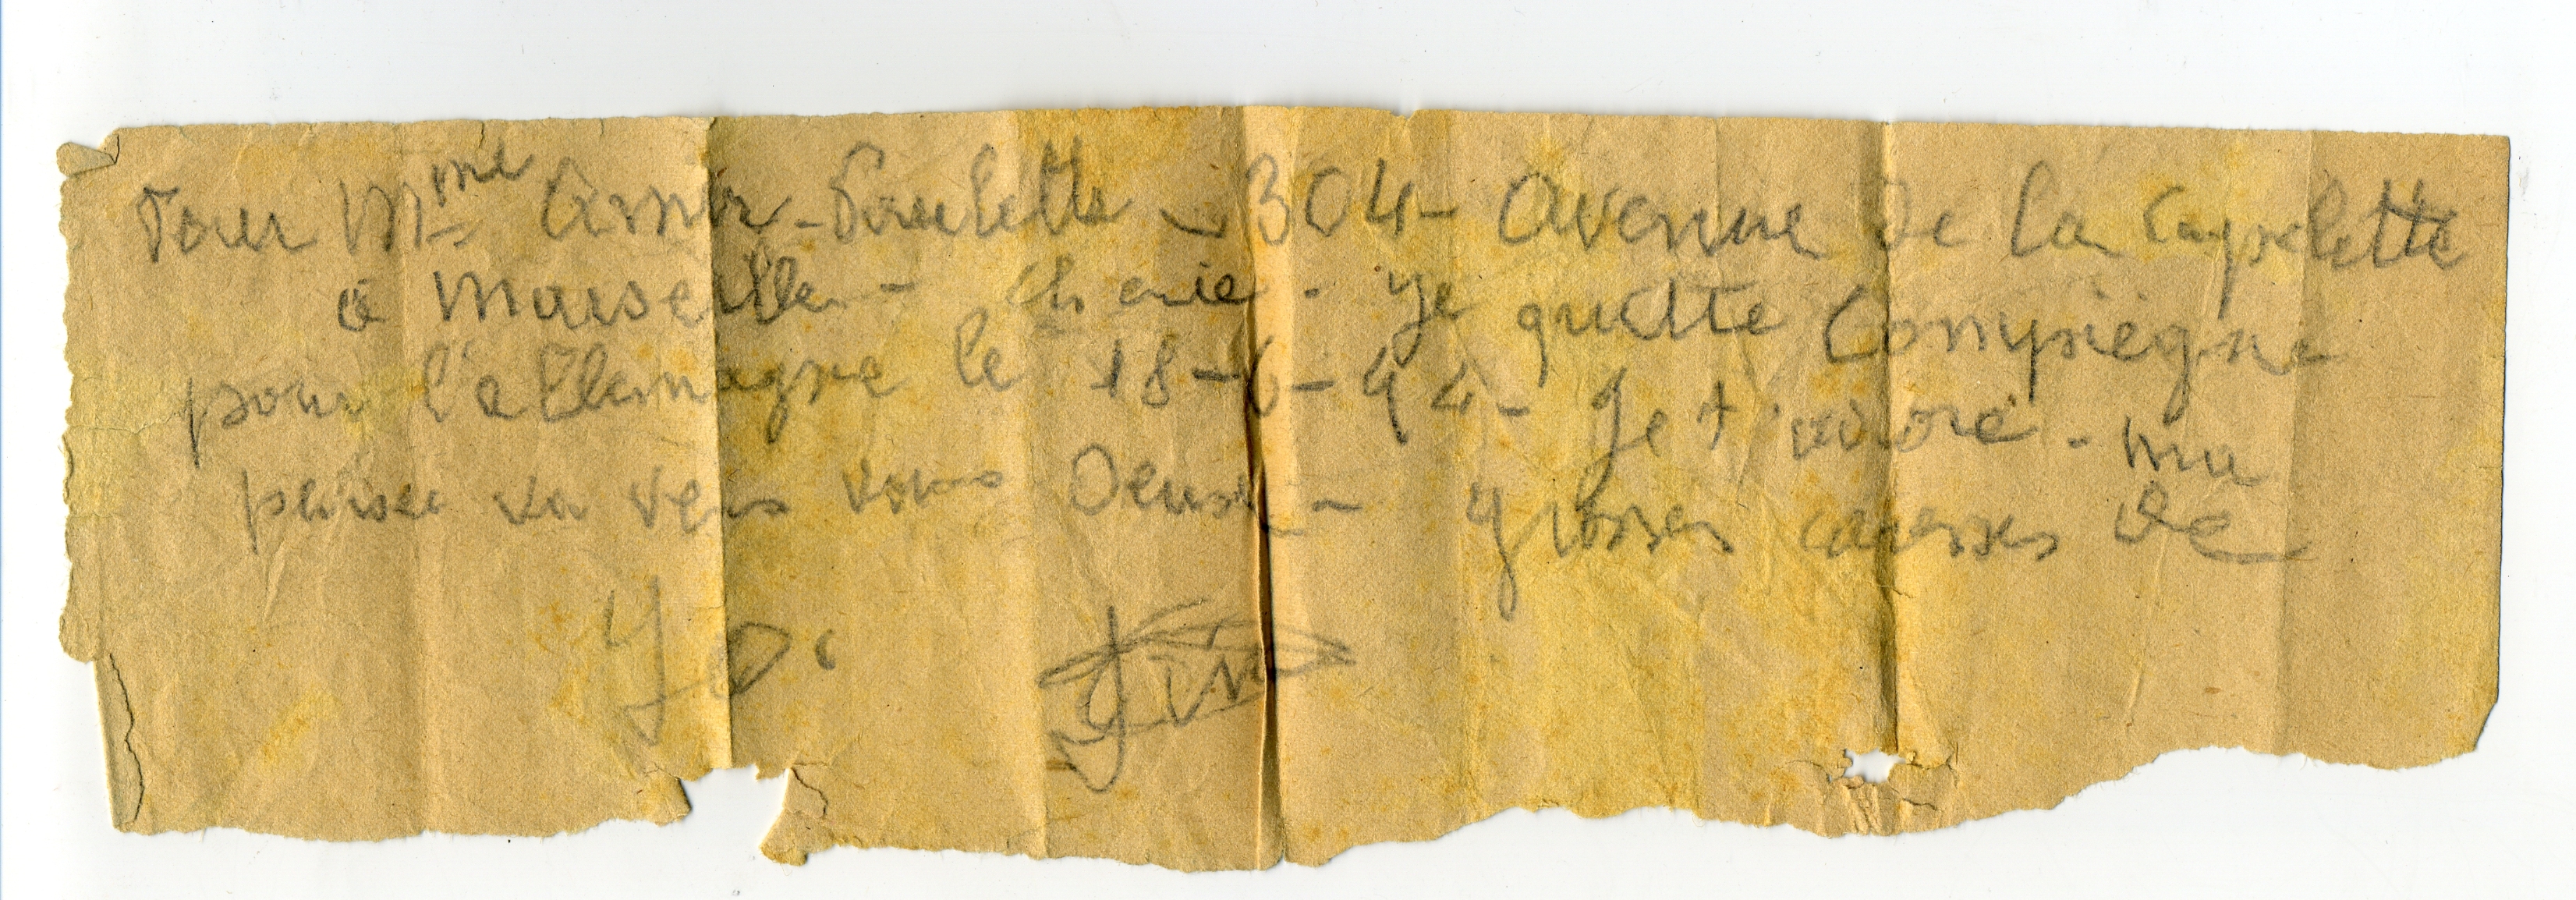 Pour Mme Paulette - 304 - Avenue de la Capelette
à Marseille - Cherie - Je quitte Compiègne
pour l'allemagne le 18-6-44 - Je t'adore - ma
pensée va vers vous Deux - grosses caresses de